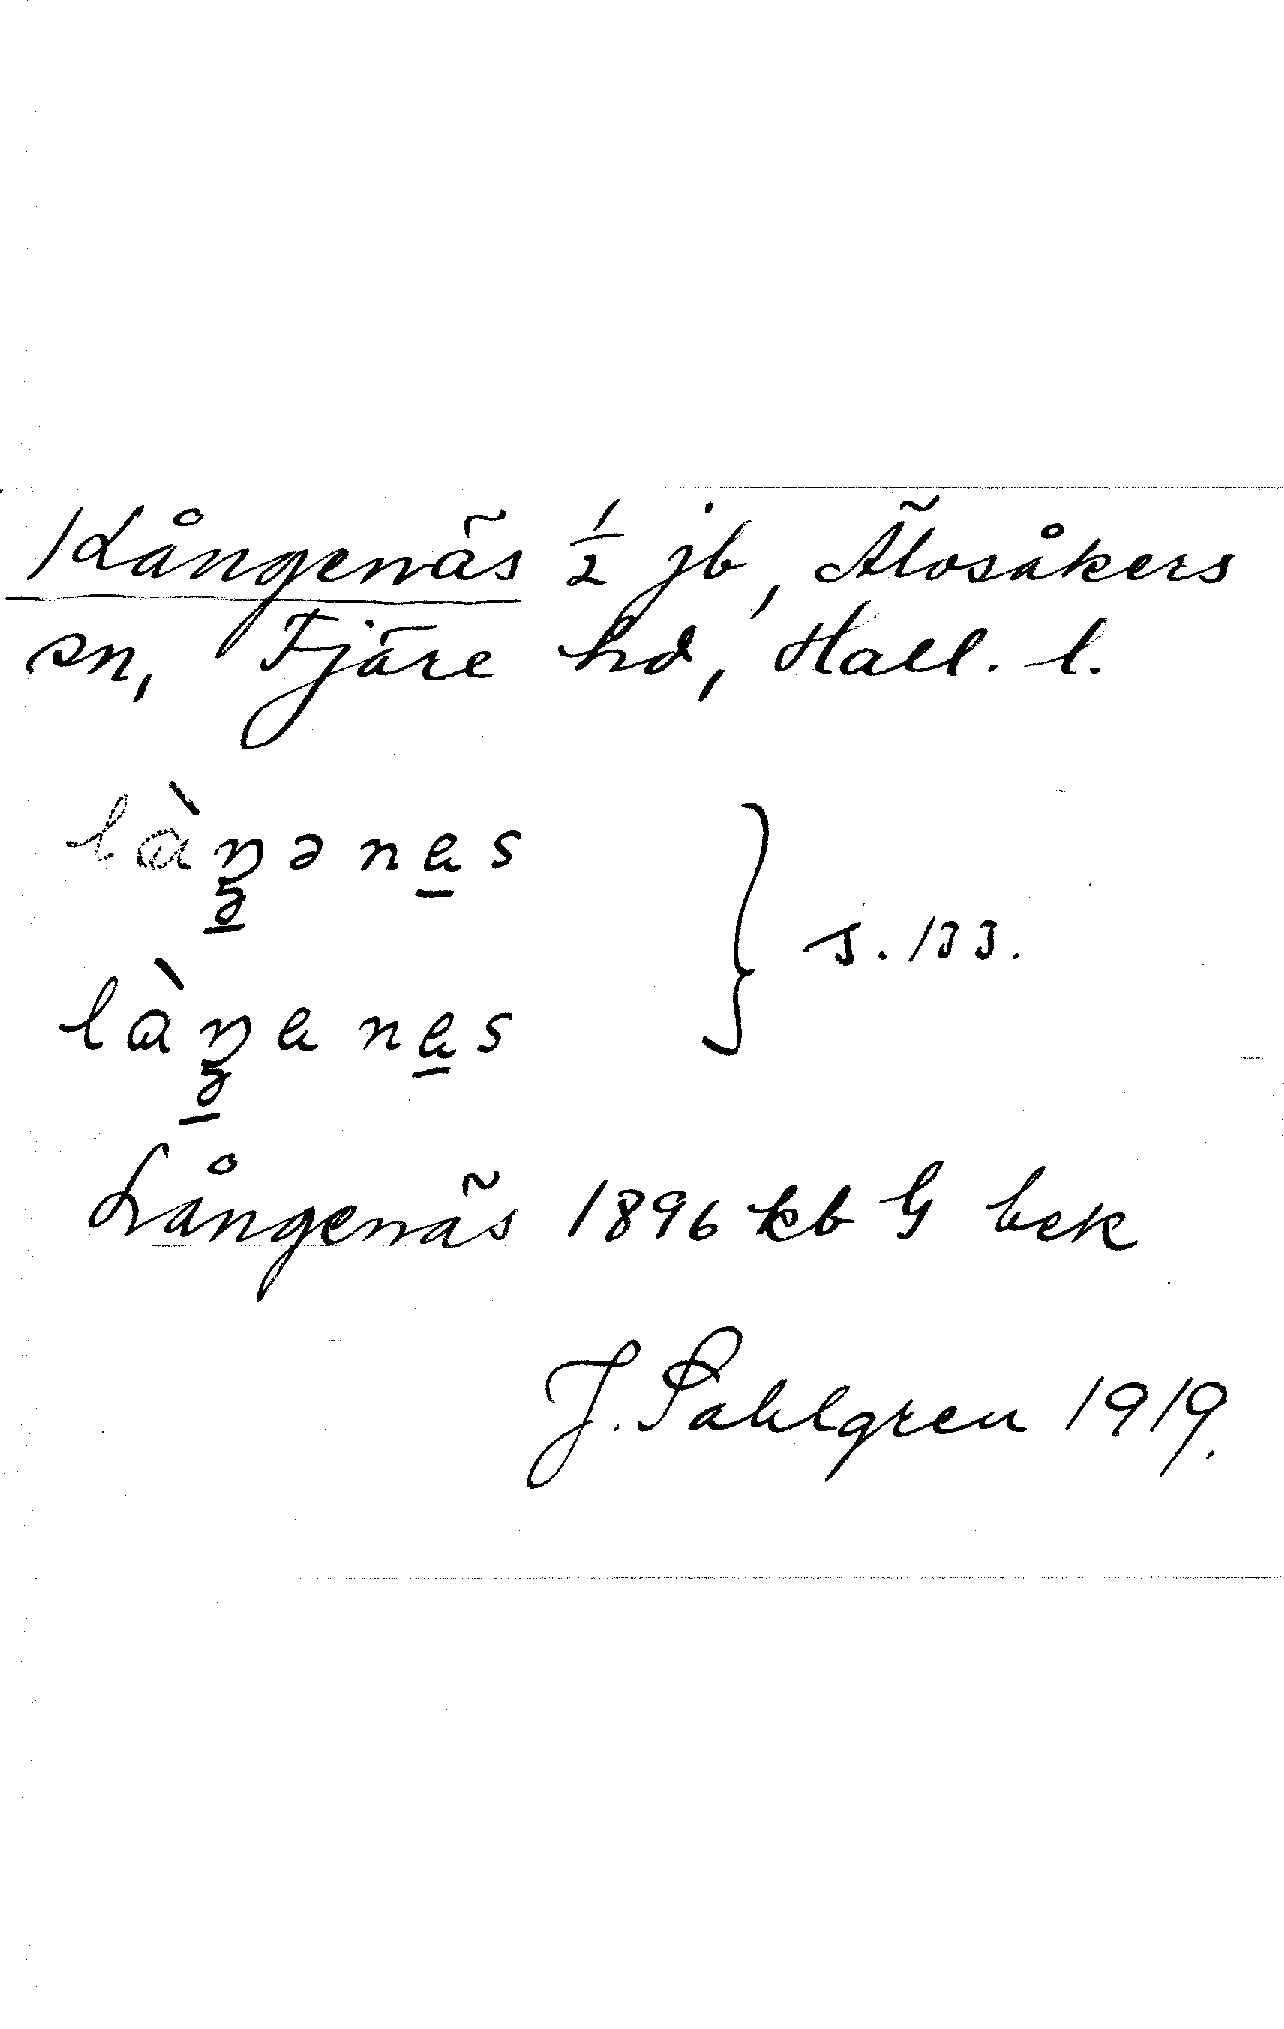 /Långenäs ½ jb, Älvsåkers
sn, Fjäre hd, Hall. l.
s. 133.
Långenäs 1896 kb G bek
J. Sahlgren 1919.